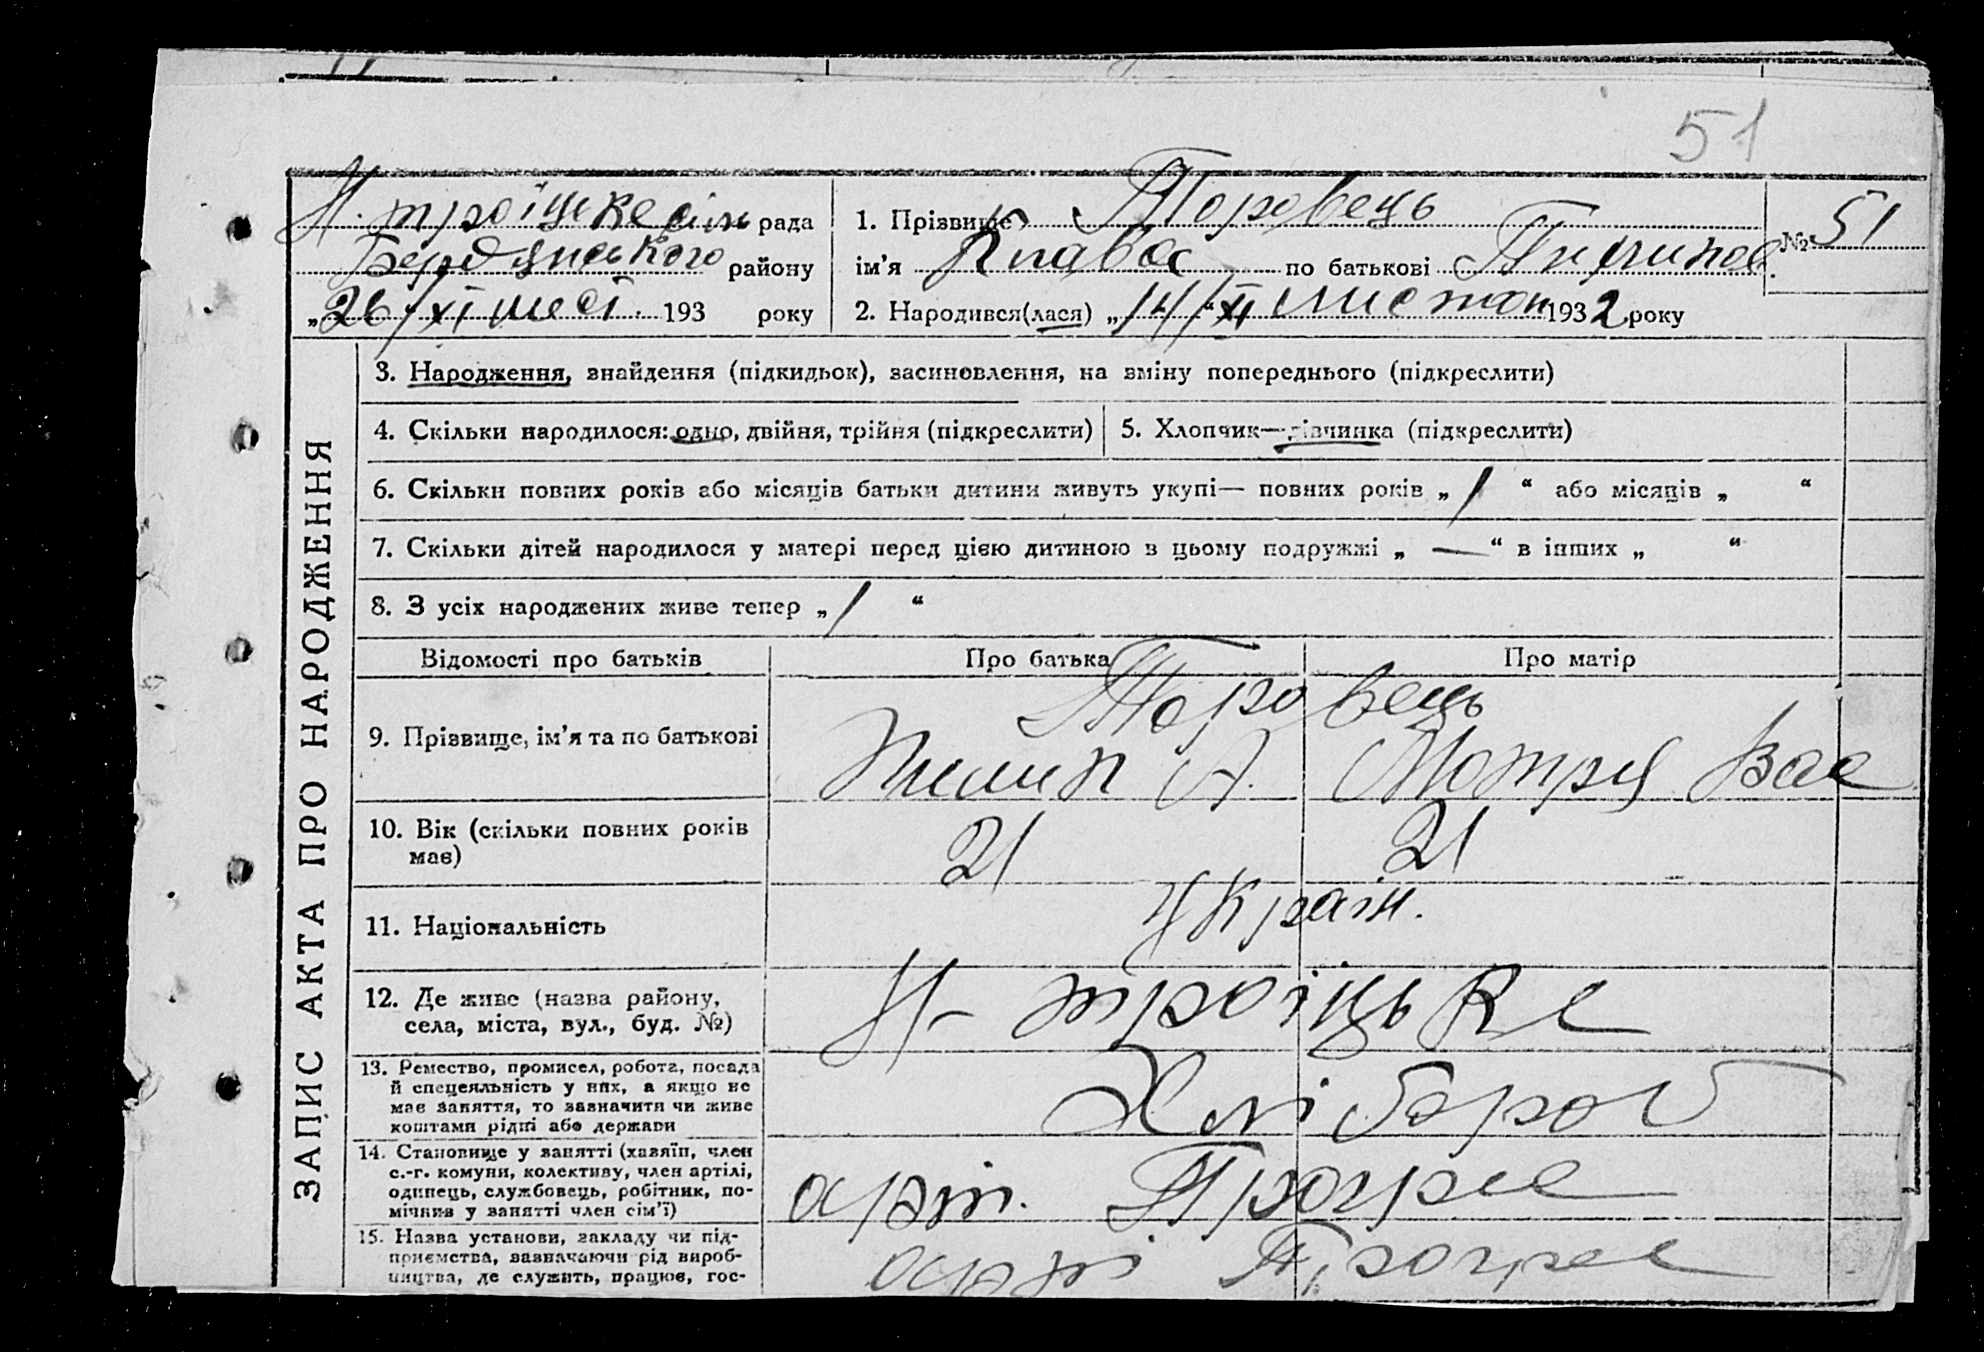 51
Н. троіцьке сіль рада
Бердянського району
„26/XI месі 193 року
1. Прізвище Торовець
ім'я Клавдє по батькові
2. Народився(лася) „14/XI листоп 1932 року
№ 51
ЗАПИС АКТА ПРО НАРОДЖЕННЯ
3. Народження, знайдення (підкидьок), засиновлення, на зміну попереднього (підкреслити)
4. Скільки народилося: одно, двійня, трійня (підкреслити)
5. Хлопчик—дівчинка (підкреслити)
6. Скільки повних років або місяців батьки дитини живуть укупі— повних років „ 1 “ або місяців „ “
7. Скільки дітей народилося у матері перед цією дитиною в цьому подружжі „ — “ в інших „ “
8. З усіх народжених живе тепер „ 1 “
Відомості про батьків
Про батька
Про матір
9. Прізвище, ім'я та по батькові
Торовець
Пилип А.
Мотря Вас
10. Вік (скільки повних років
має)
21
21
11. Національність
Україн.
12. Де живе (назва району,
села, міста, вул., буд. №)
Н- троіцьке
13. Ремество, промисел, робота, посада
й спецеяльність у них, а якщо не
має заняття, то зазначити чи живе
коштами рідні або держави
Хлібороб
14. Становище у занятті (хазяїн, член
с.-г. комуни, колективу, член артілі,
одинець, службовець, робітник, по-
мічник у занятті член сім'ї)
арт. Прогрес
15. Назва установи, закладу чи під-
приємства, зазначаючи рід вироб-
ництва, де служить, працює, гос-
арті Прогрес